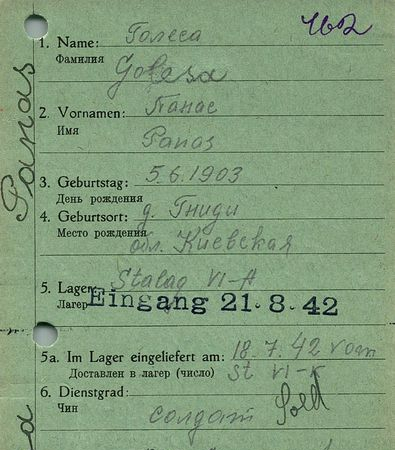 462
1. Name: Голеса
Фамилия
Golesa
2. Vornamen: Панас
Имя
Panas
Panas
3. Geburtstag: 5.6.1903
День рождения
4. Geburtsort: д. Гниди
Место рождения
обл. Киевская
5. Lager: Stalag VI-A
Лагерь
Eingang 21.8.42
5a. Im Lager eingeliefert am: 18.7.42 vom
Доставлен в лагерь (число) St VI-K
6. Dienstgrad:
Чин
солдат Sold